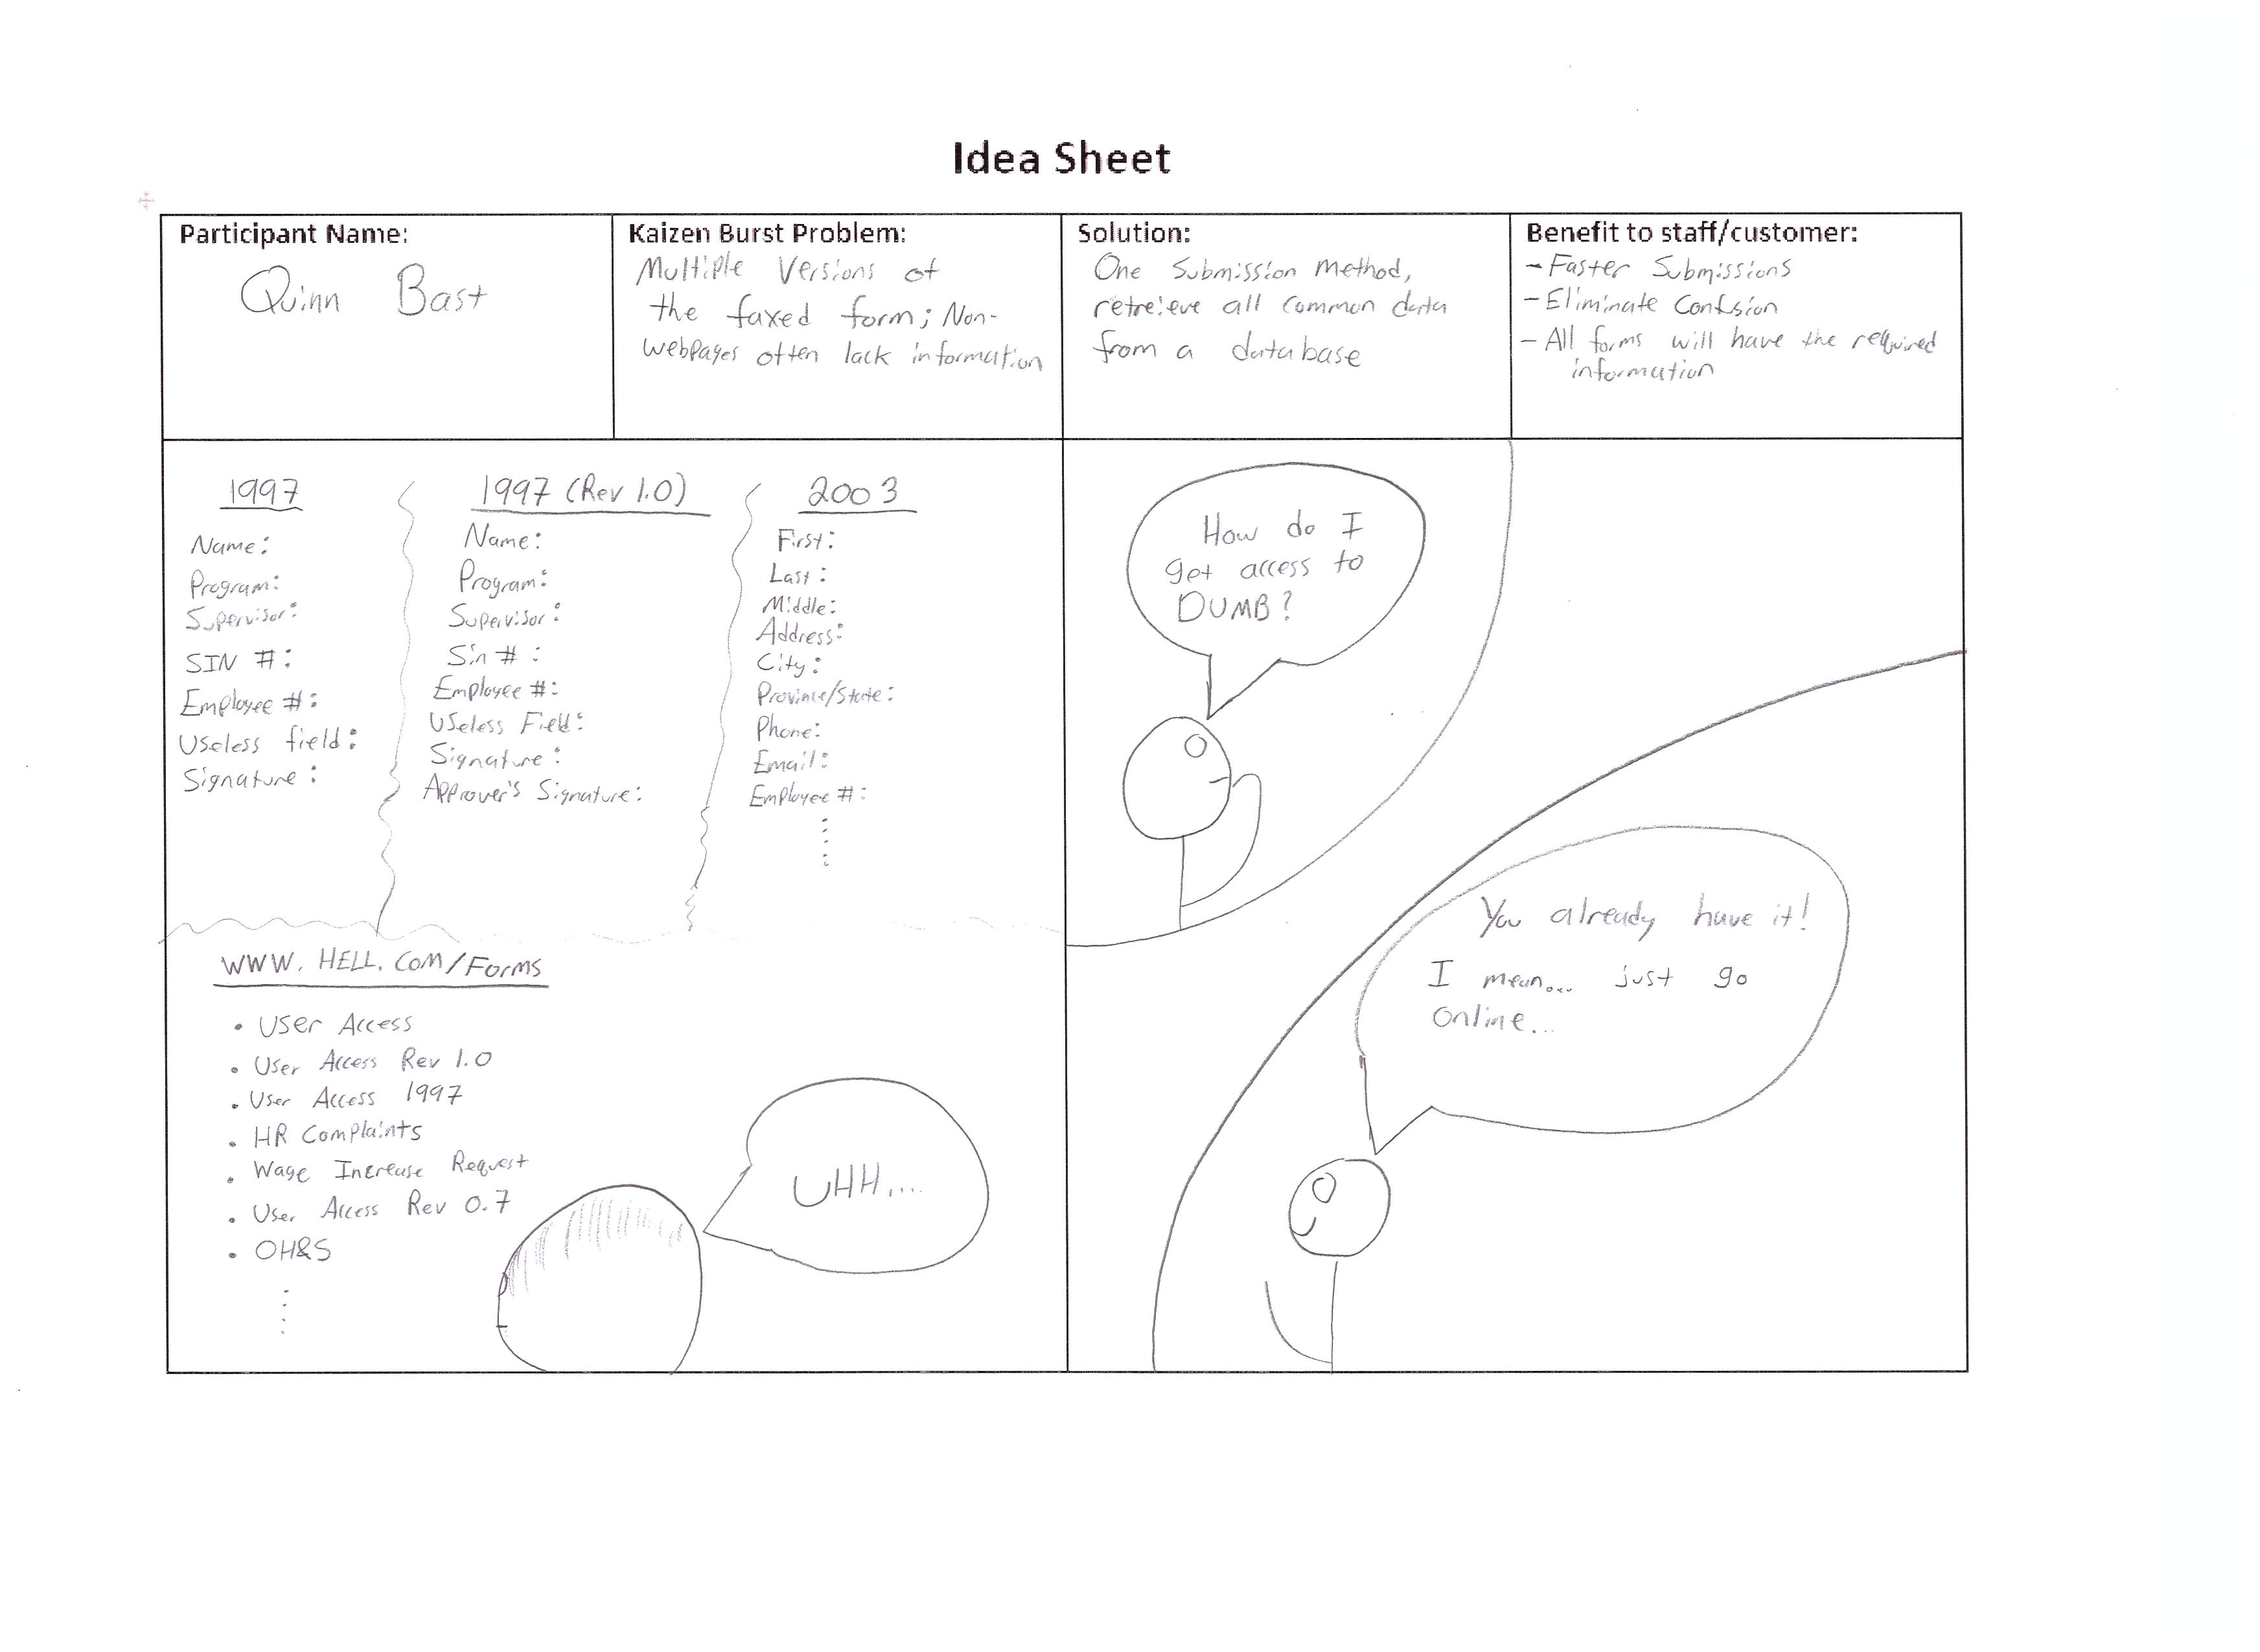 Idea Sheet
Participant Name:
Quinn Bast
Kaizen Burst Problem:
Multiple Versions of
the faxed form; Non-
webpages often lack information
Solution:
One Submission method,
retreieve all common data
from a database
Benefit to staff/customer:
- Faster Submissions
- Eliminate Confsion
- All forms will have the required
information
1997
Name:
Program:
Supervisor:
SIN #:
Employee #:
Useless field:
Signature:
1997 (Rev 1.0)
Name:
Program:
Supervisor:
Sin #:
Employee #:
Useless Field:
Signature:
Approver's Signature:
2003
First:
Last:
Middle:
Address:
City:
Province/State:
Phone:
Email:
Employee #:
WWW.HELL.COM/Forms
• User Access
• User Access Rev 1.0
• User Access 1997
• HR Complaints
• Wage Increase Request
• User Access Rev 0.7
• OH&S
UHH....
How do I
get access to
DUMB?
You already have it!
I mean... just go
online...